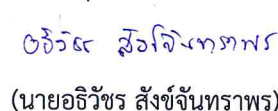 อธิวัชร สังข์จันทราพร
(นายอธิวัชร สังข์จันทราพร)